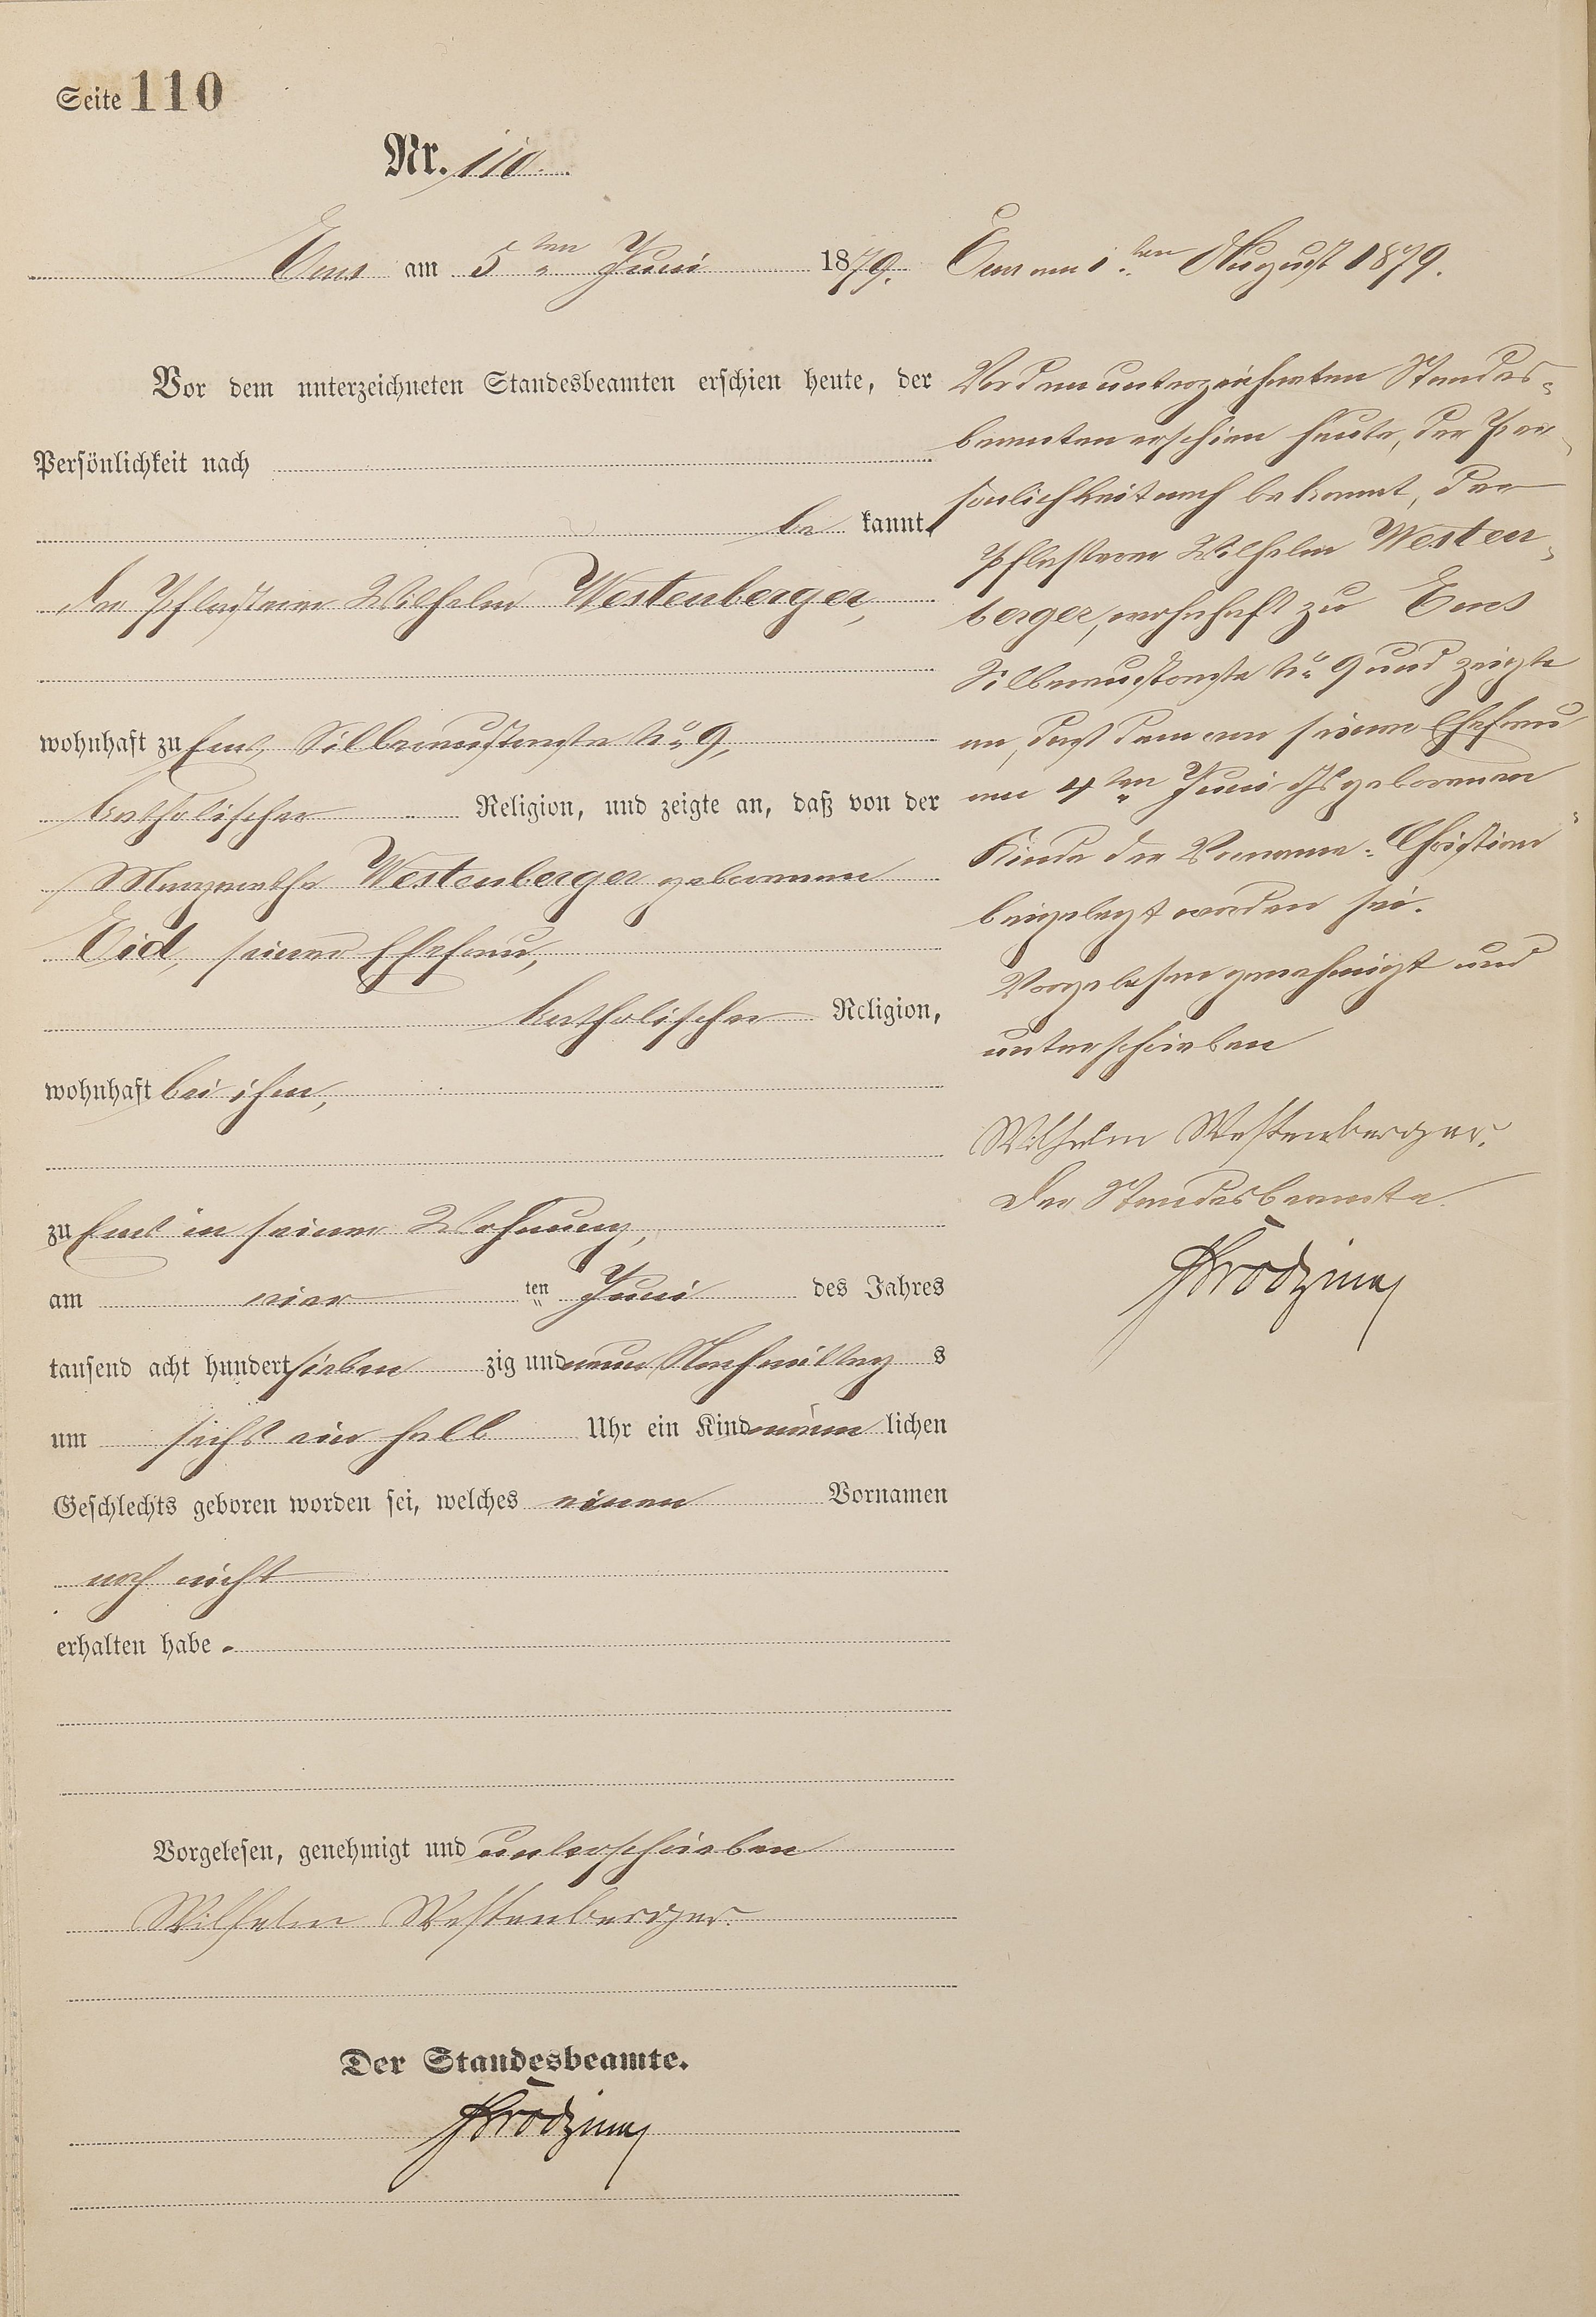 Seite 110
Nr. 110.
Ems am 5ten Juni 1879.
Vor dem unterzeichneten Standesbeamten erschien heute, der
Persönlichkeit nach
be kannt,
der Pflasterer Wilhelm Westenberger,
wohnhaft zu Ems, Silberaustraße No 9,
katholischer Religion, und zeigte an, daß von der
Margarethe Westenberger geborenen
Eid, seiner Ehefrau,
katholischer Religion,
wohnhaft bei ihm,
zu Ems in seiner Wohnung,
am vier ten Juni des Jahres
tausend acht hundert sieben zig und neun Nachmittag s
um sechs ein halb Uhr ein Kind männ lichen
Geschlechts geboren worden sei, welches einen Vornamen
noch nicht
erhalten habe.
Vorgelesen, genehmigt und unterschrieben
Wilhelm Westenberger.
Der Standesbeamte.
Ems am 1ten August 1879.
Vor dem unterzeichneten Standes-
beamten erschien heute, der Per-
sönlichkeit nach bekannt, der
Pflasterer Wilhelm Westen-
berger, wohnhaft zu Ems
Silberaustraße No 9 und zeigte
an, daß dem von seiner Ehefrau
am 4ten Juni ds geborenen
Kinde der Vorname: „Christian“
beigelegt worden sei.
Vorgelesen genehmigt und
unterschrieben
Wilhelm Westenberger.
Der Standesbeamte.